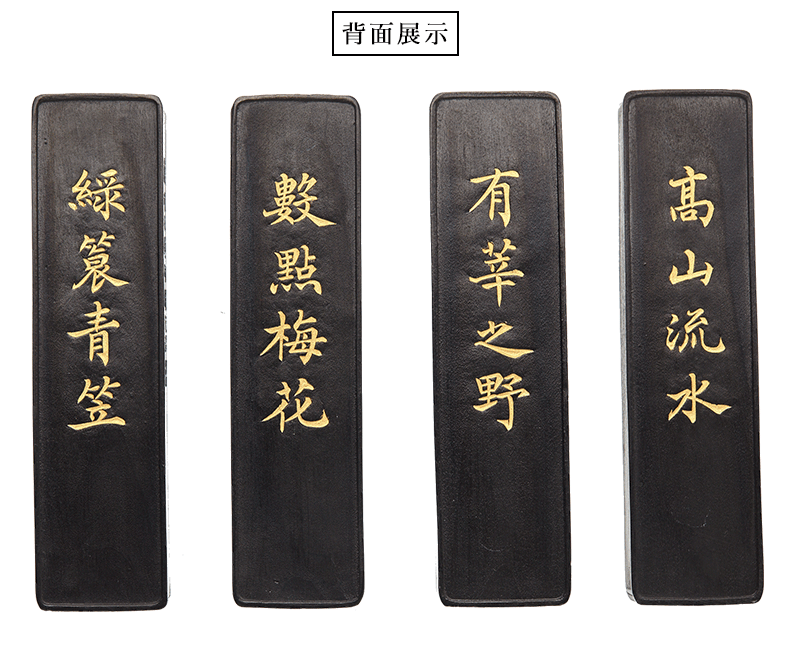 背面展示
綠簑青笠
數點梅花
有莘之野
高山流水